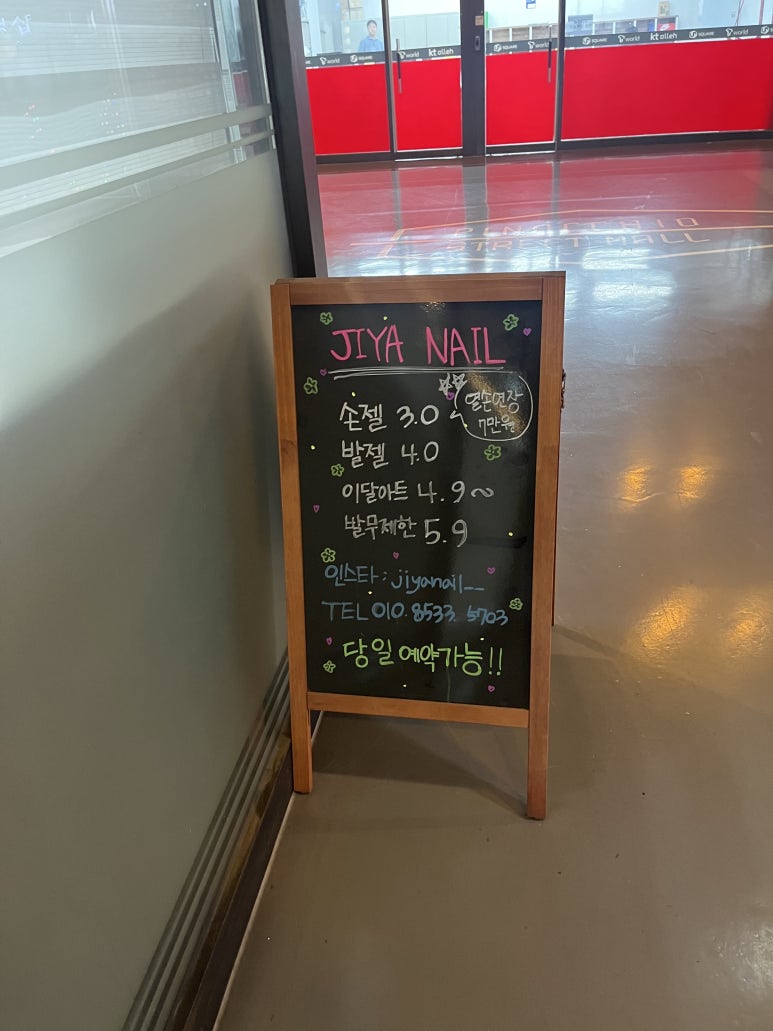 SQUARE T world kt olleh SQUARE T world kt olleh SQUARE T world
STREET MALL
JIYA NAIL
손젤 3.0
열손연장
7만원
발젤 4.0
이달아트 4.9~
발무제한 5.9
인스타 : jiyanail__
TEL 010. 8533. 5703
당일 예약가능!!